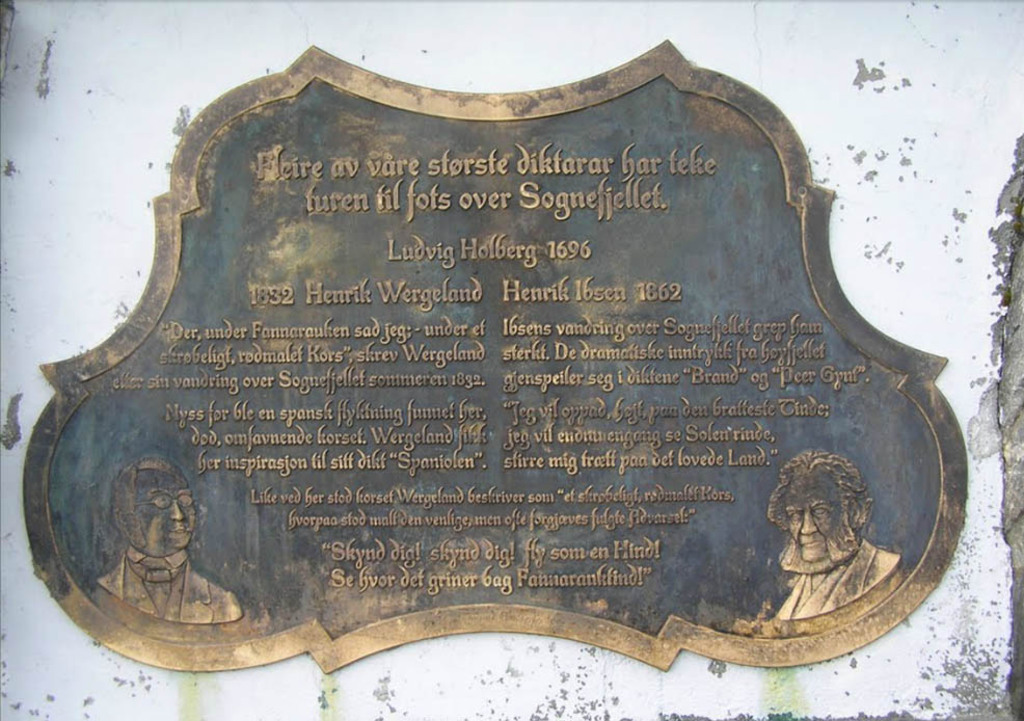 Fleire av våre største diktarar har teke
turen til fots over Sognefjellet.
Ludvig Holberg 1696
1832 Henrik Wergeland
"Der, under Fannarauken sad jeg; - under et
skrøbeligt, rødmalet Kors", skrev Wergeland
etter sin vandring over Sognefjellet sommeren 1832.
Nyss før ble en spansk flyktning funnet her,
død, omfavnende korset. Wergeland fikk
her inspirasjon til sitt dikt "Spaniolen".
Henrik Ibsen 1862
Ibsens vandring over Sognefjellet grep ham
sterkt. De dramatiske inntrykk fra høyfjellet
gjenspeiler seg i diktene "Brand" og "Peer Gynt".
"Jeg vil oppad, højt, paa den bratteste Tinde;
jeg vil endnu engang se Solen rinde,
stirre mig træt paa det lovede Land."
Like ved her stod korset Wergeland beskriver som "et skrøbeligt, rødmalet Kors,
hvorpaa stod malt den venlige, men ofte forgjæves fulgte Advarsel:"
"Skynd dig! skynd dig! fly som en Hind!
Se hvor det griner bag Fannaraukind!"